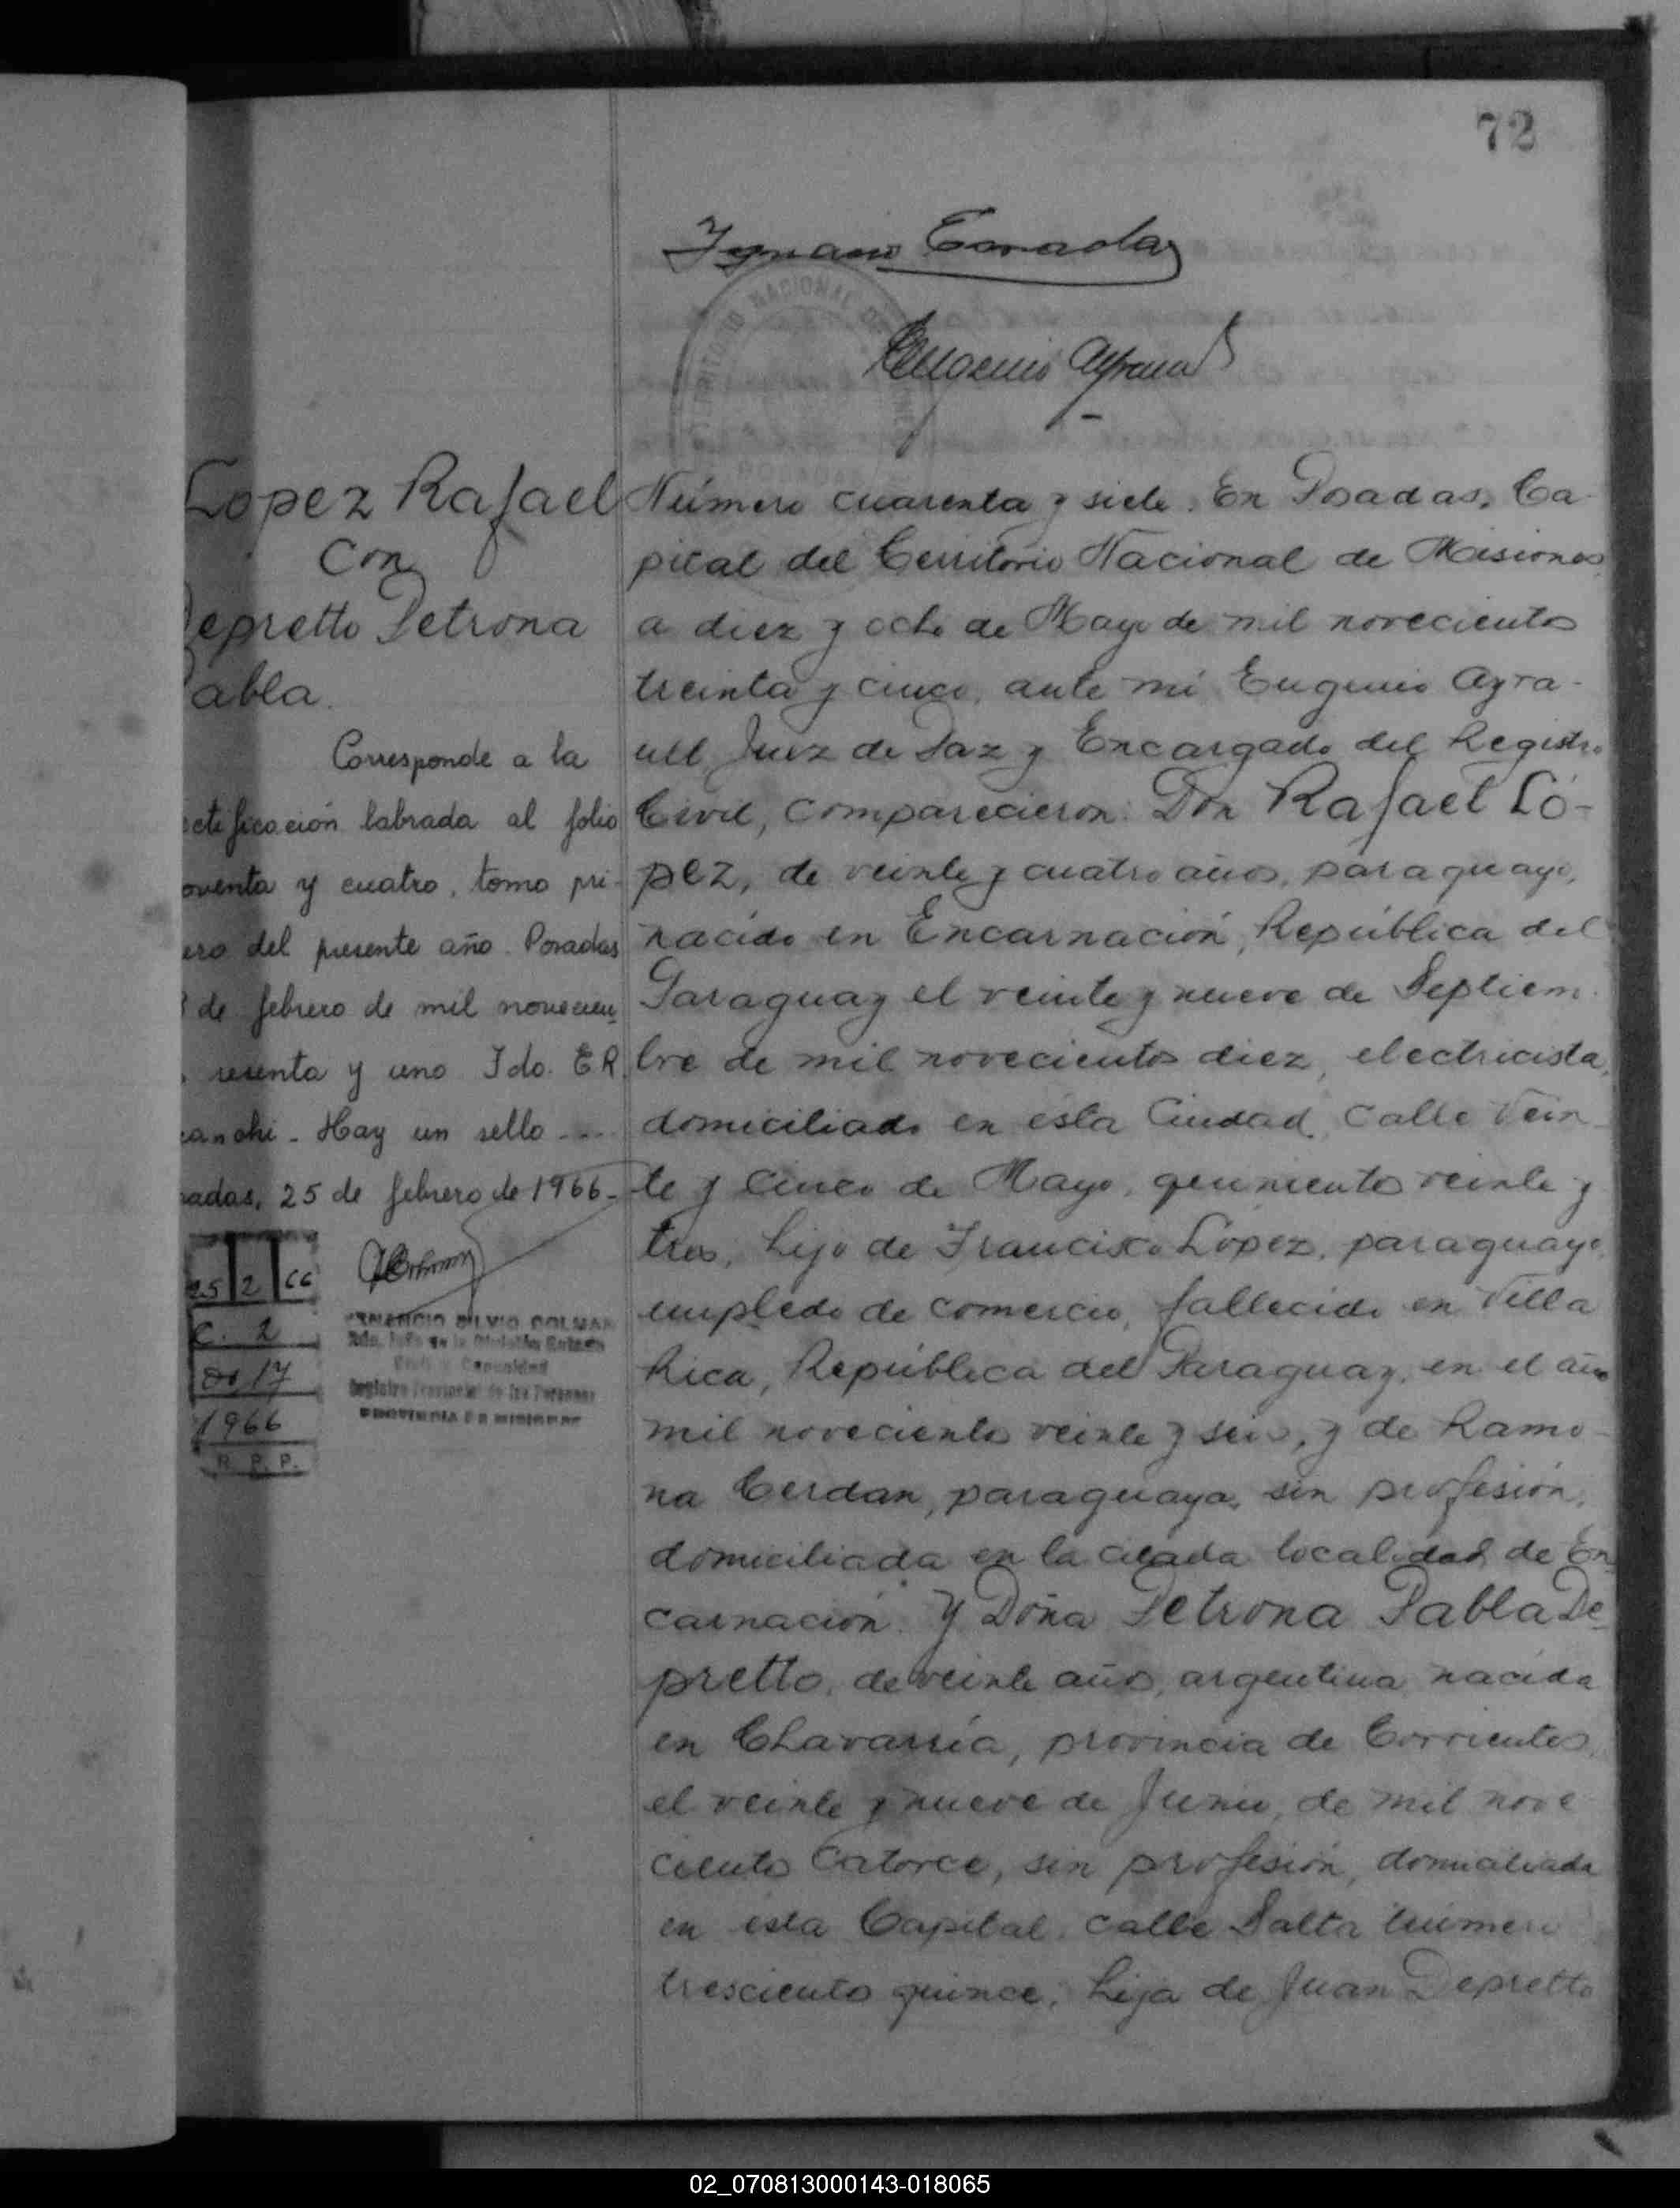 72
Ignacio
Eugenio Ayrault
TERRITORIO NACIONAL DE
POSADAS
Lopez Rafael
Con
Depretto Petrona
Pabla.
Corresponde a la
ectificación labrada al folio
oventa y cuatro, tomo pri-
ero del presente año. Posadas
de febrero de mil novecien
sesenta y uno Fdo. E R.
anchi - Hay un sello ...
sadas, 25 de febrero de 1966-
25 2 66
C. 2
17
1966
R. P. P.
SILVIO
Registro Provincial de las Personas
PROVINCIA DE MISIONES
Número cuarenta y siete. En Posadas, Ca-
pital del Territorio Nacional de Misiones,
a diez y ocho de Mayo de mil novecientos
treinta y cinco, ante mi Eugenio Ayra-
ult Juez de Paz y Encargado del Registro
Civil, comparecieron: Don Rafael Ló-
pez, de veinte y cuatro años, paraguayo,
nacido en Encarnación, República del
Paraguay el veinte y nueve de Septiem-
bre de mil novecientos diez, electricista,
domiciliado en esta Ciudad, calle Vein-
te y Cinco de Mayo, quinientos veinte y
tres, hijo de Francisco López, paraguayo,
empledo de comercio, fallecido en Villa
Rica, República del Paraguay, en el año
mil novecientos veinte y seis, y de Ramo-
na Cerdan, paraguaya, sin profesión,
domiciliada en la citada localidad de En
carnación. Y Doña Petrona Pabla De-
pretto, de veinte años, argentina, nacida
en Chavarría, provincia de Corrientes,
el veinte y nueve de Junio, de mil nove
cientos Catorce, sin profesión, domiciliada
en esta Capital, calle Salta número
trescientos quince, hija de Juan Depretto
02_070813000143-018065